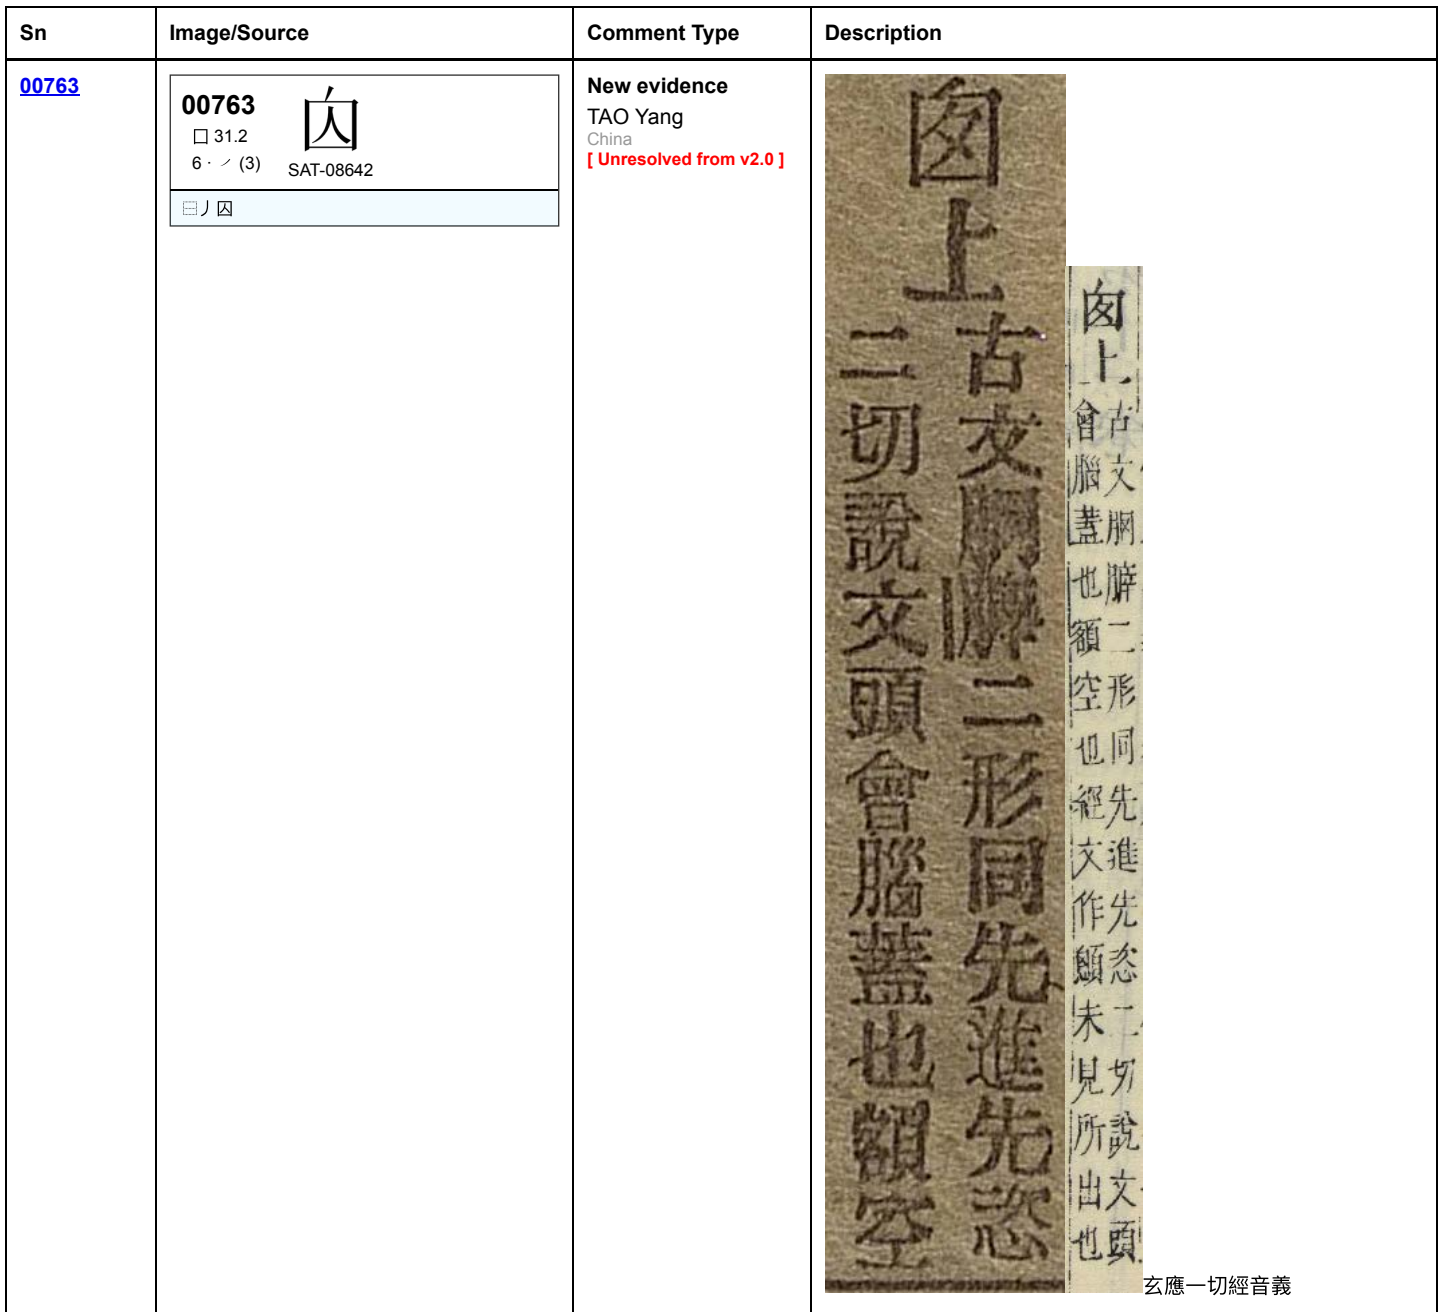 Sn Image/Source Comment Type Description
00763
00763
囗 31.2
6 · ㇒ (3)
SAT-08642
⿱丿囚
New evidence
TAO Yang
China
[ Unresolved from v2.0 ]
囟上
古文二形同先進先恣
二切說文頭會腦蓋也額空
囟上
古文二形同先進先恣二切說文頭
會腦蓋也額空也經文作未見所出也
玄應一切經音義